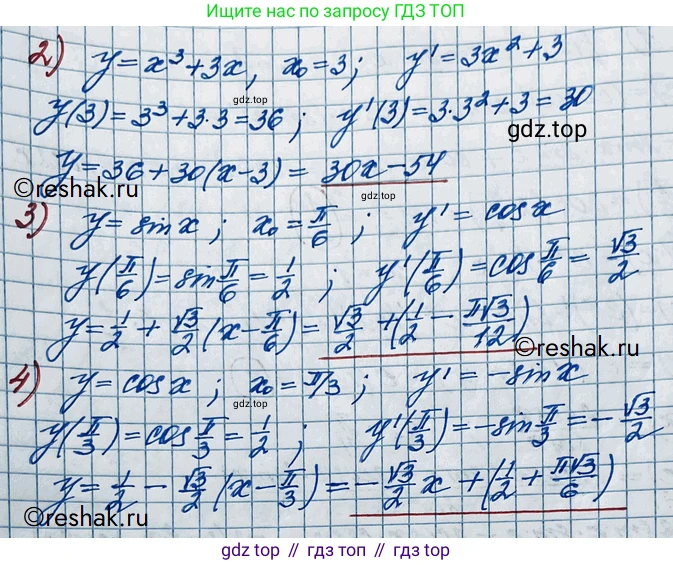 Ищите нас по запросу ГДЗ ТОП
2) y = x³ + 3x, x₀ = 3; y' = 3x² + 3
gdz.top
y(3) = 3³ + 3·3 = 36; y'(3) = 3·3² + 3 = 30
gdz.top
y = 36 + 30(x - 3) = 30x - 54
©reshak.ru
gdz.top
3) y = sin x; x₀ = π/6; y' = cos x
y(π/6) = sin π/6 = 1/2; y'(π/6) = cos π/6 = √3/2
y = 1/2 + √3/2 (x - π/6) = √3/2 + (1/2 - π√3/12)
©reshak.ru
4) y = cos x; x₀ = π/3; y' = -sin x
gdz.top
y(π/3) = cos π/3 = 1/2; y'(π/3) = -sin π/3 = -√3/2
y = 1/2 - √3/2 (x - π/3) = -√3/2 x + (1/2 + π√3/6)
©reshak.ru
gdz top // гдз топ // gdz.top